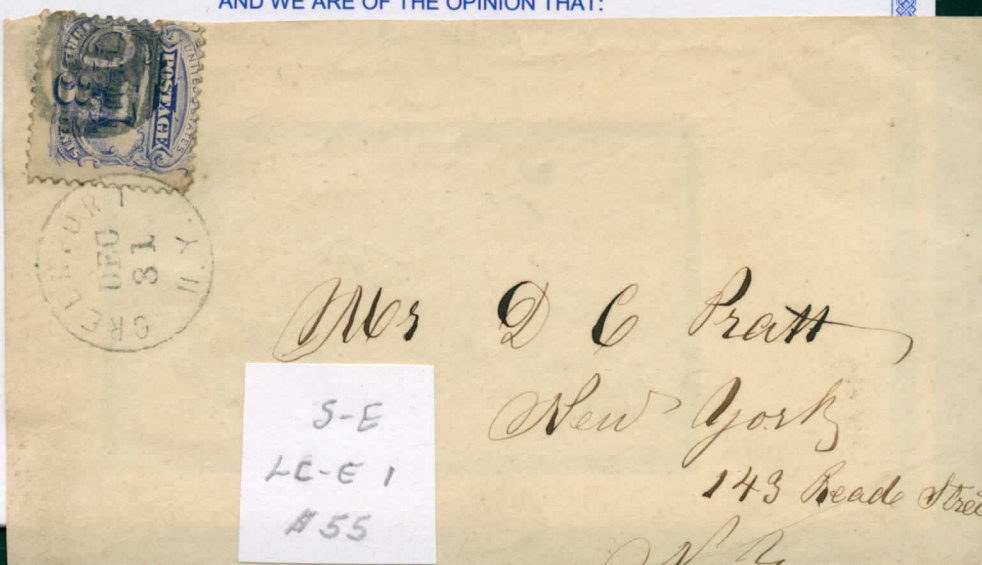 AND WE ARE OF THE OPINION THAT:
UNITED STATES
POSTAGE
3
GREENPORT N.Y.
DEC
31
Mr D C Pratt
New York
143 Reade Street
N Y
S-E
LC-E 1
#55